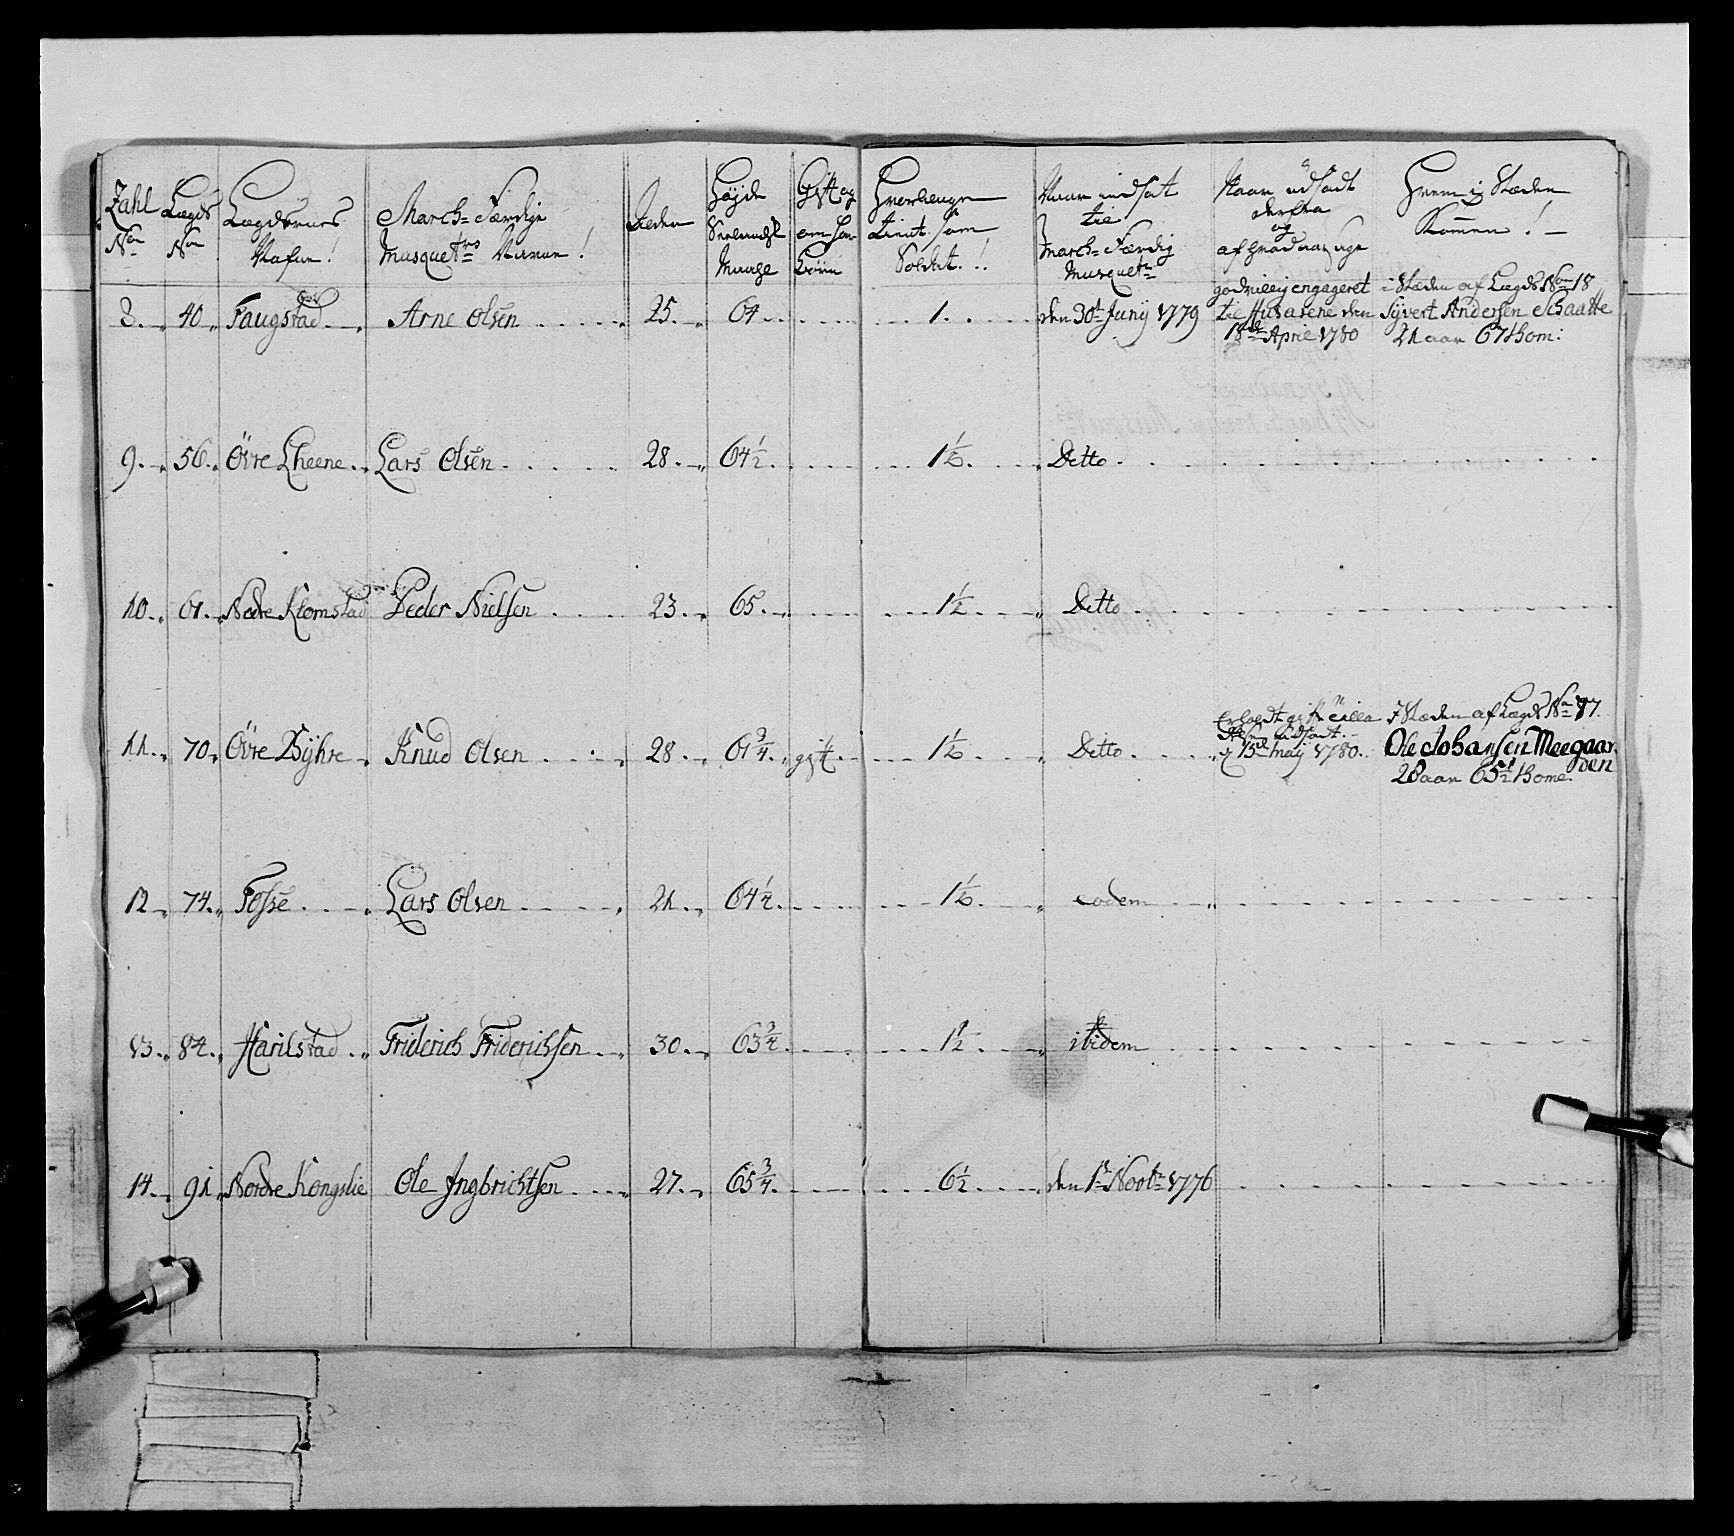 Zahl No
Lægds No
Lægdernes Nafne!
March=Færdige Musquetrs Navne!
Alder
Høyde Siellandsk Maale
Gift og om har Børn
Hvorlænge tient som Soldat.!!
Naar indsat til March=Færdig Musquetr
Naar udsadt derfra og afhvad aarsage
Hvem i Stæden Kommen!
8. 40 Faugstad Arne Olsen 25. 64 1. den 30t Junij 1779 godvillig engageret til Husarene den 18de April 1780 i Stæden af Lægds No 18 Syvert Andersen Skaatte 21 aar 67 thom:
9. 56. Övre Lheene Lars Olsen 28. 64½ 1½ Detto
10. 61. Nedre Klomstad Peder Nielsen 23. 65. 1½ Detto
11. 70 Övre Byhre Knud Olsen 28. 61¾ gift 1½ Detto 15de maij 1780. I Stæden af Lægds No 77. Ole Johansen Meegaarden 28 aar 65½ thome
12 74. Fosse Lars Olsen 21. 64¼ 1½ eodem
13. 84. Harilstad Friderich Friderichsen 30. 63¾ 1½ ibidem
14. 91 Nordre Kongslie Ole Ingbrichtsen 27. 65¾ 6½ den 1t Novbr 1776